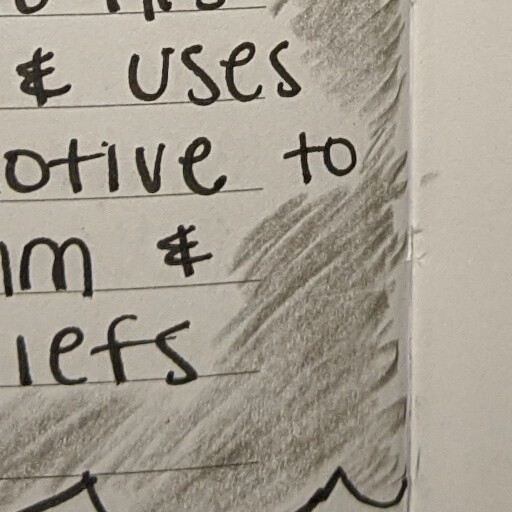 & uses
otive to
im &
iefs